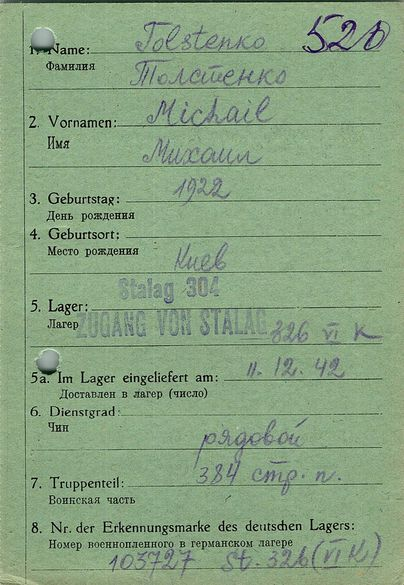 520
1. Name: Tolstenko
Фамилия Толстенко
2. Vornamen: Michail
Имя Михаил
3. Geburtstag: 1922
День рождения
4. Geburtsort:
Место рождения Киев
Stalag 304
5. Lager:
Лагер ZUGANG VON STALAG 326 VI K
5a. Im Lager eingeliefert am: 11.12.42
Доставлен в лагер (число)
6. Dienstgrad:
Чин рядовой
7. Truppenteil: 384 стр. п.
Воинская часть
8. Nr. der Erkennungsmarke des deutschen Lagers:
Номер военнопленного в германском лагере
103727 St. 326 (VI K)